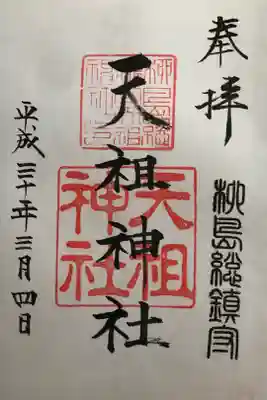 奉拝
柳島総鎮守
天祖神社
天祖
神社
平成三十年三月四日